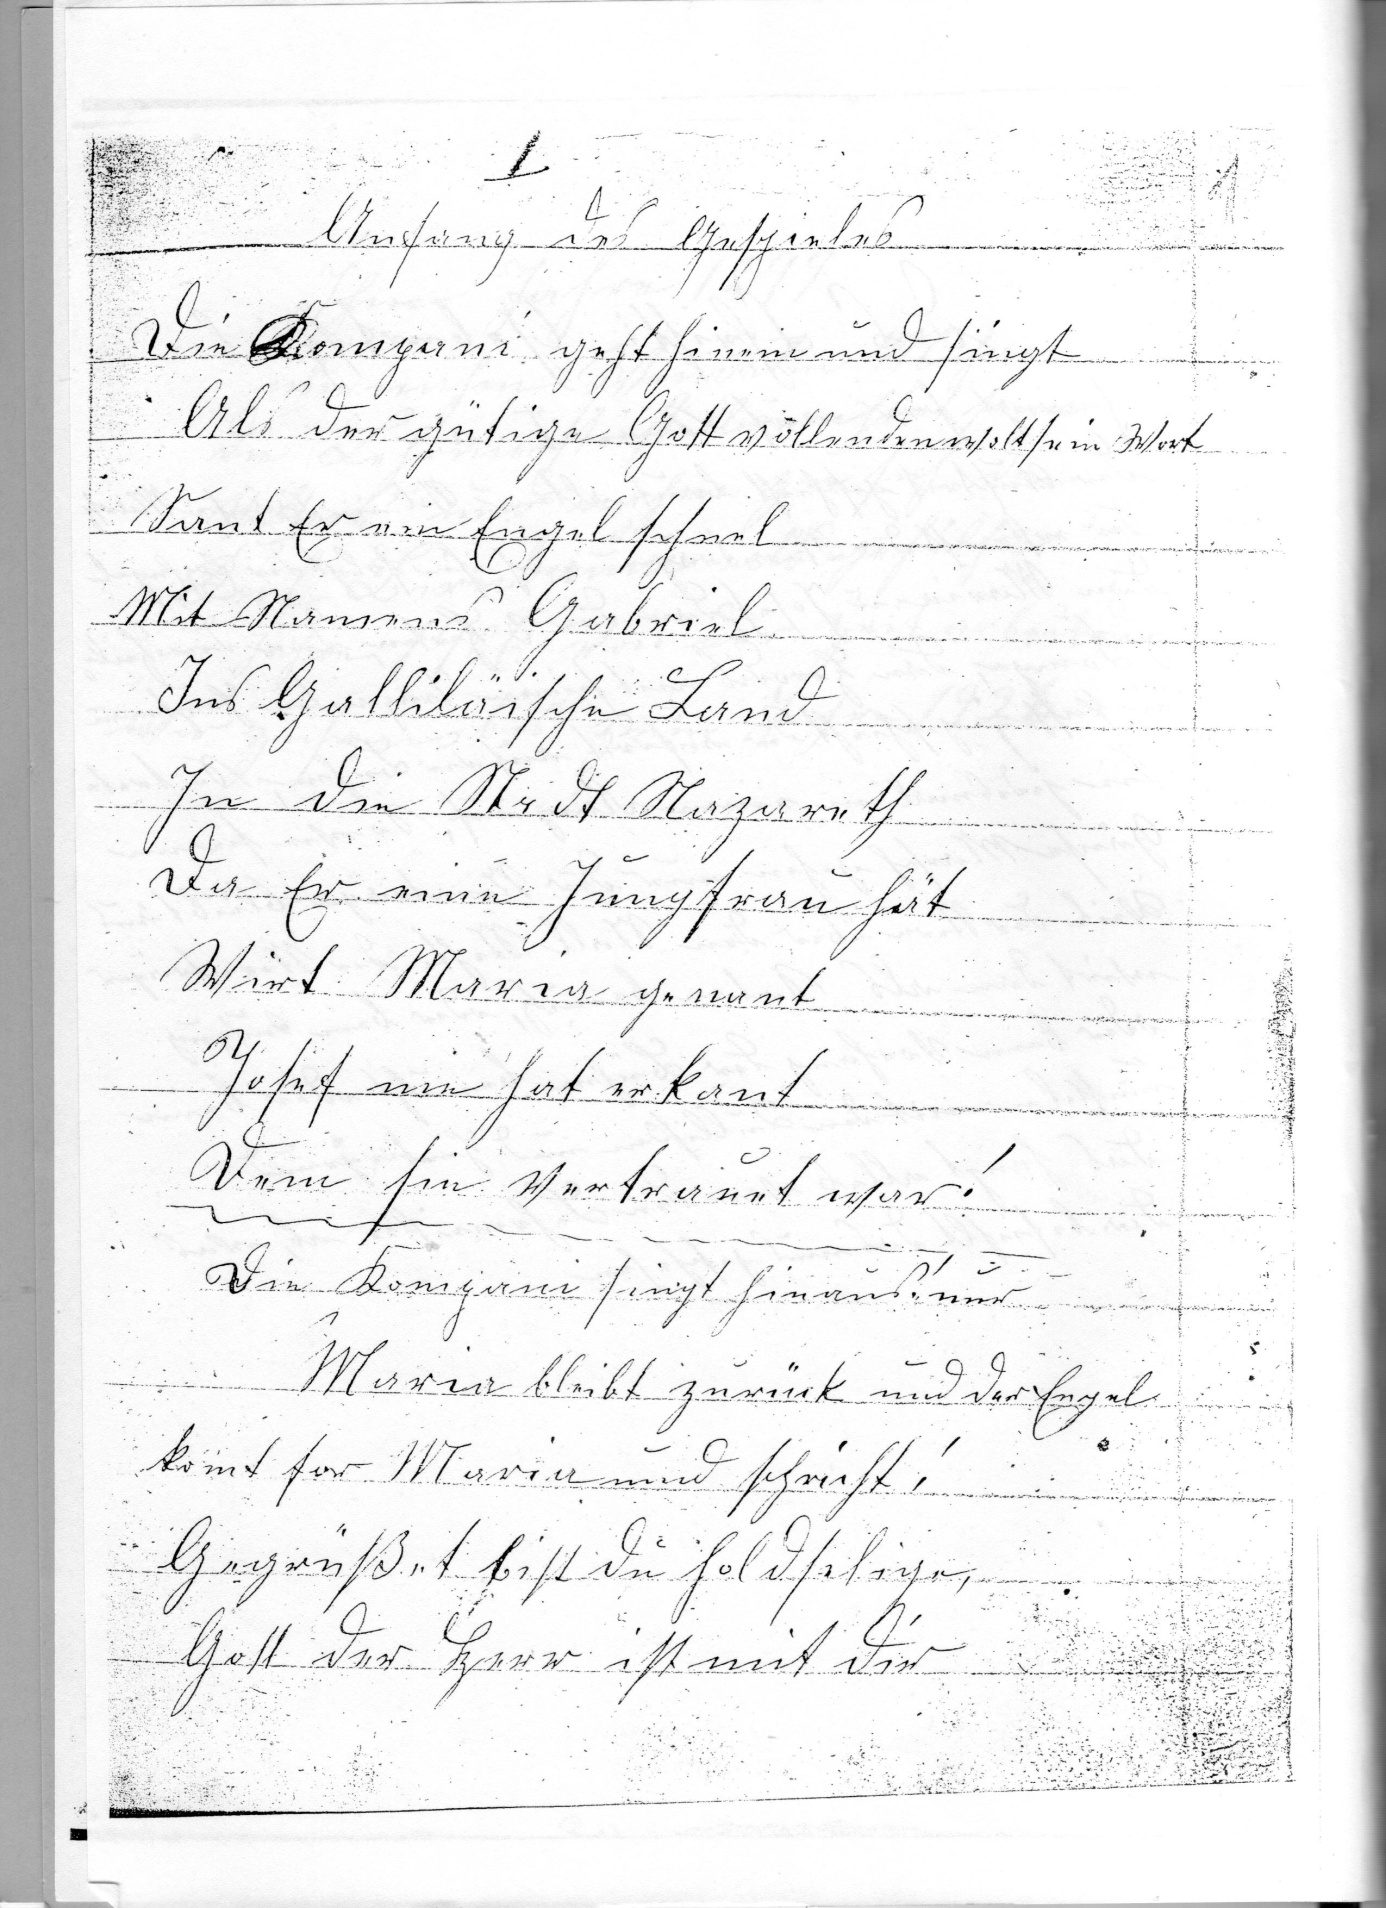 1
Anfang des Gespieles
Die Kompani geht hinein und singt
Als der gütige Gott vollenden wolt sein Wort
Sant Er ein Engel schnel
Mit Namens Gabriel
Ins Galliläische Land
In die Stadt Nazareth
Da Er eine Jungfrau hät
Wirt Maria genant
Josef nie hat erkant
Dem sie vertrauet war!
Die Kompani singt hinaus! nur
Maria bleibt zurück und der Engel
komt for Maria und schpricht!
Gegrüßet bist du holdselige,
Gott der Herr ist mit dir